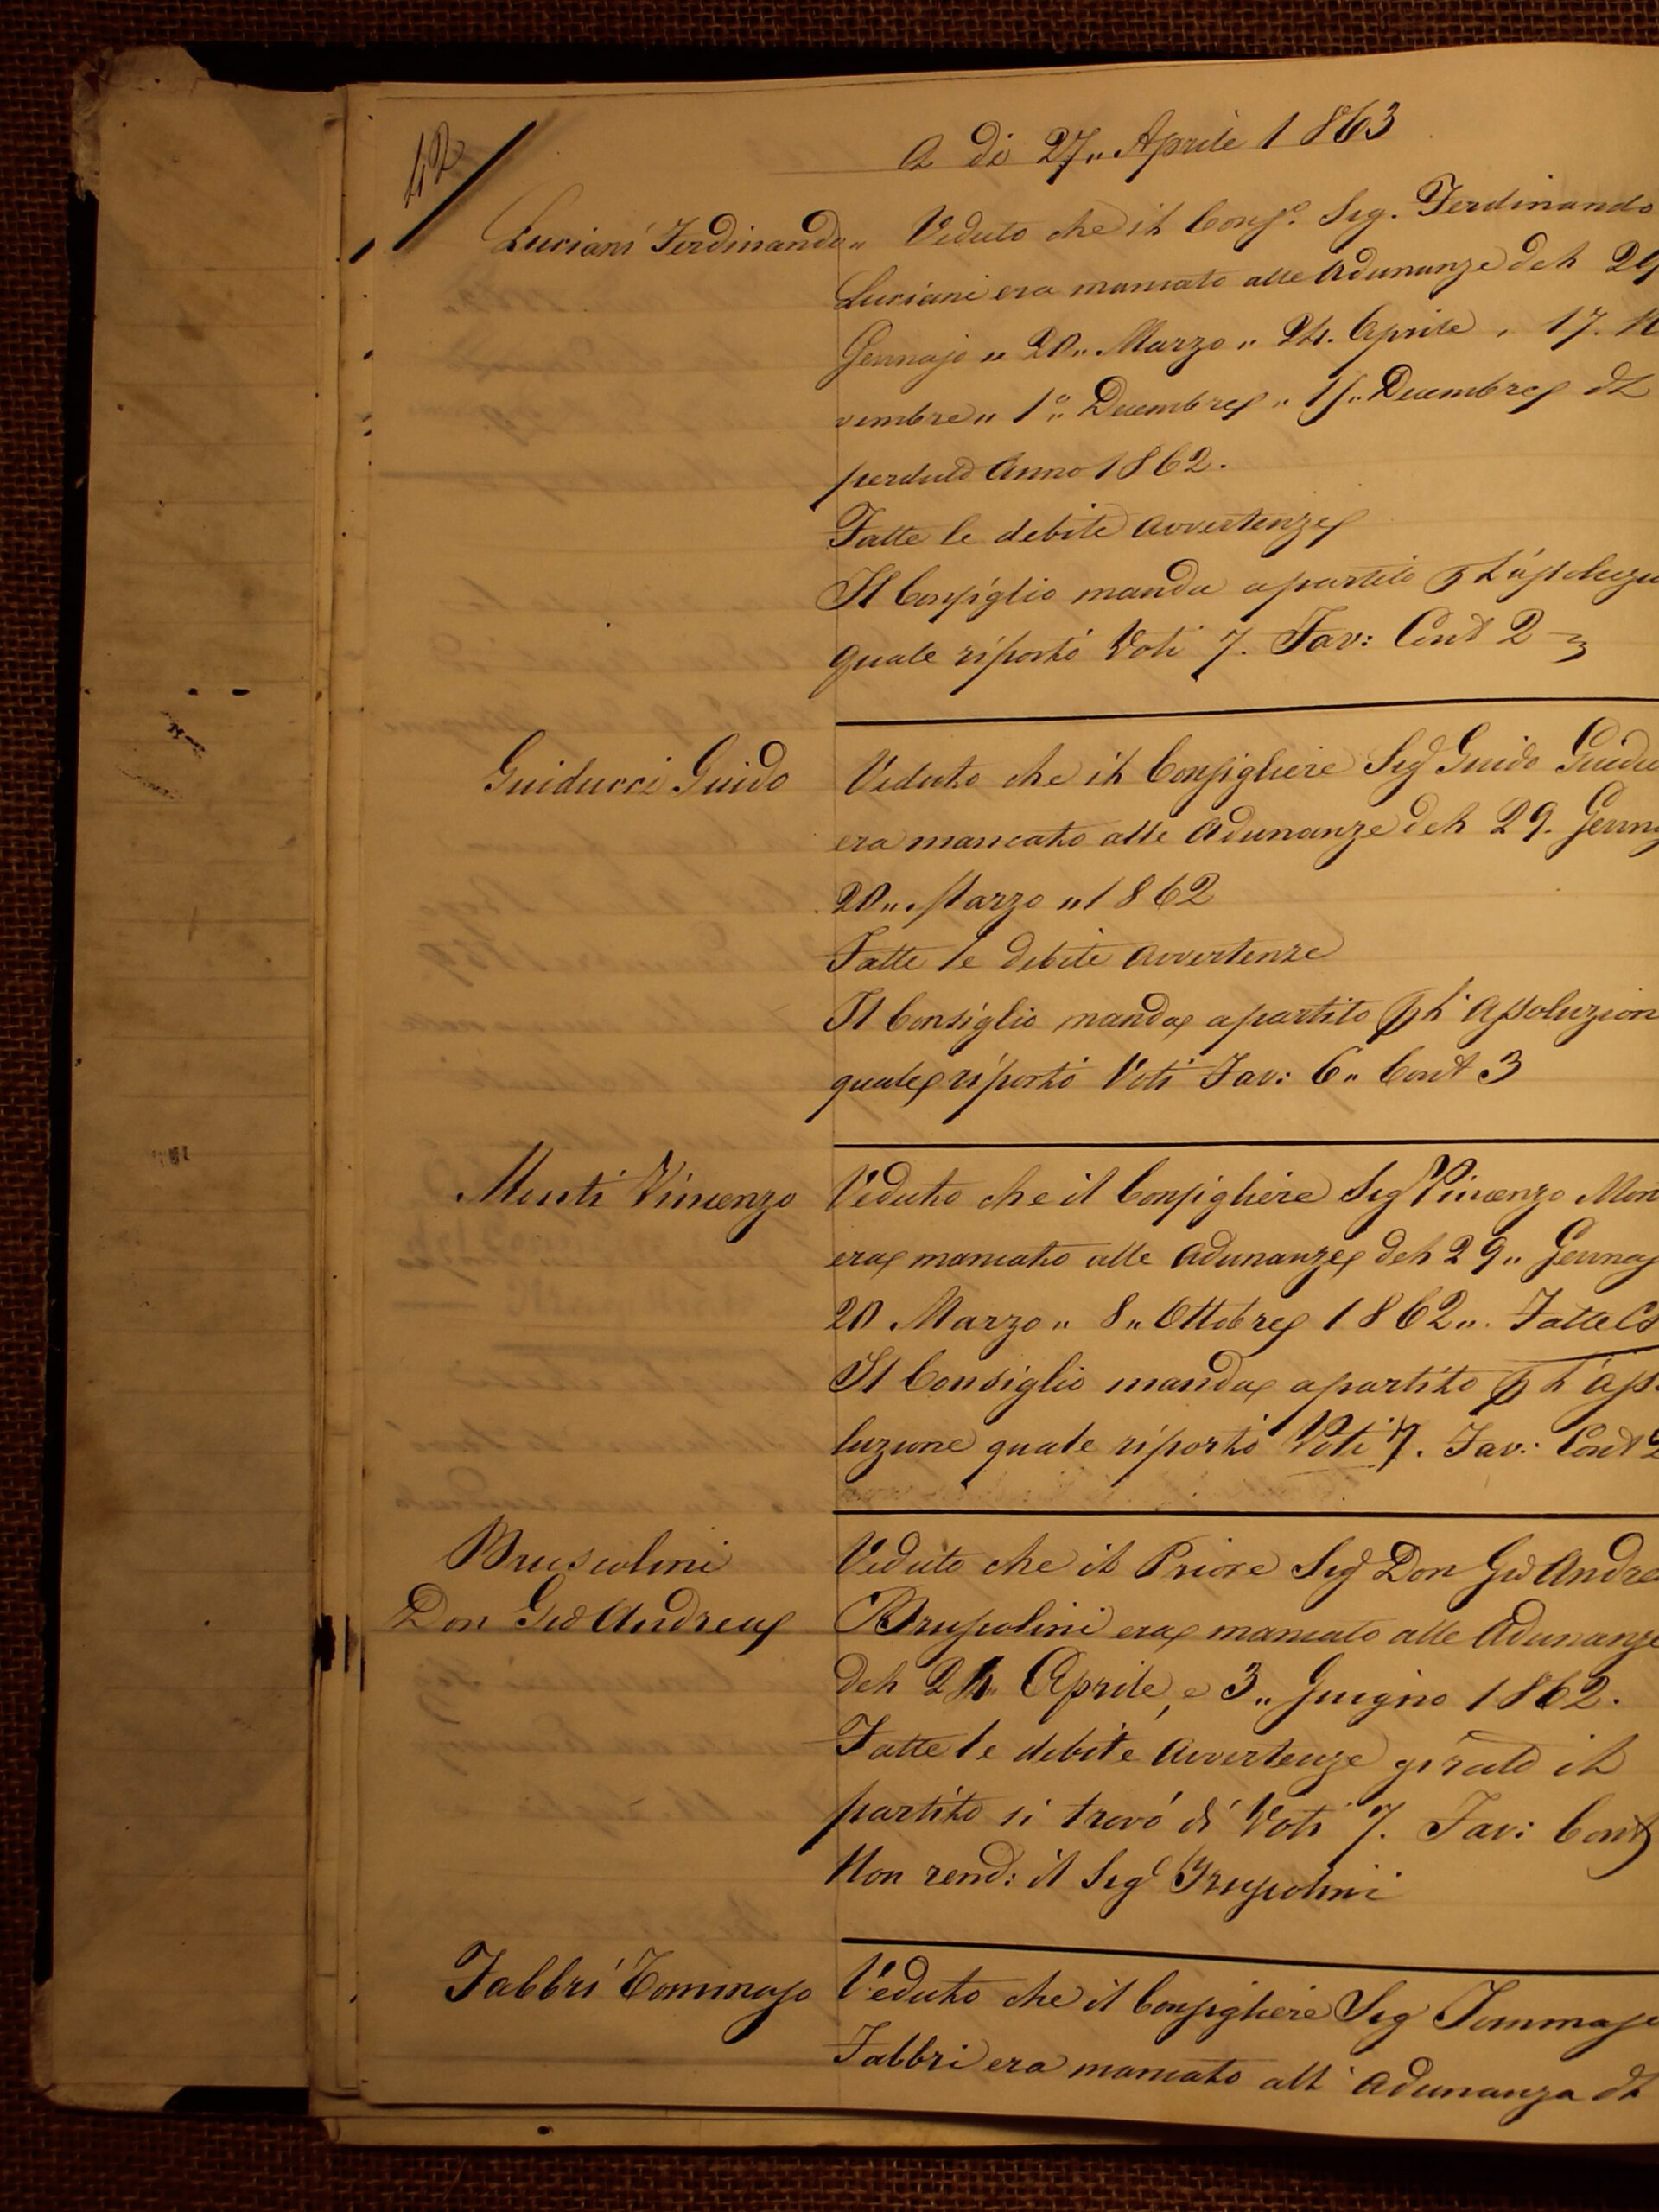 42
A di 27,, Aprile 1863
Luciani Ferdinando,, Veduto che il Conso. Sig. Ferdinando
Luciani era mancato alle Adunanze del 29
Gennajo ,, 20,, Marzo ,, 24. Aprile , 17. N
vembre ,, 1o,, Decembre ,, 15,, Decembre dl
perduto Anno 1862.
Fatte le debite avvertenze
Il Consiglio manda a partito p l'assoluzio
quale riportò Voti 7. Fav: Cont 2
Guiducci Guido Veduto che il Consigliere Sig Guido Guidu
era mancato alle Adunanze del 29. Genna
20,, Marzo ,, 1862
Fatte le debite avvertenze
Il Consiglio manda a partito p l'assoluzion
quale riportò Voti Fav: 6,, Cont 3
Monti Vincenzo Veduto che il Consigliere Sig Vincenzo Mon
era mancato alle Adunanze del 29,, Gennaj
20 Marzo ,, 8,, Ottobre 1862,,. Fatte
Il Consiglio manda a partito p l'asso
luzione quale riportò Voti 7. Fav: Cont 2
Bruscolini Veduto che il Priore Sig Don Gio Andrea
Don Gio Andrea Bruscolini era mancato alle Adunanze
del 24,, Aprile, e 3,, Giugno 1862.
Fatte le debite avvertenze girato il
partito si trovò di Voti 7. Fav: Cont
Non rend: il Sig Bruscolini
Fabbri Tommaso Veduto che il Consigliere Sig Tommaso
Fabbri era mancato all' Adunanza dl